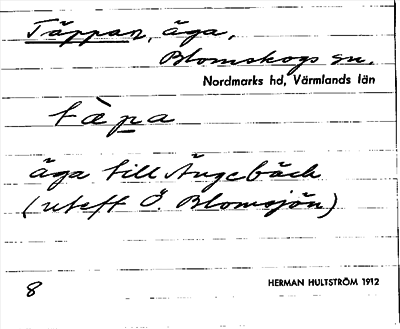 Täppan, äga,
Blomskogs sn.
Nordmarks hd, Värmlands län
tὰpa
äga till Ängebäck
(uteft Ö. Blomsjön)
8
HERMAN HULTSTRÖM 1912